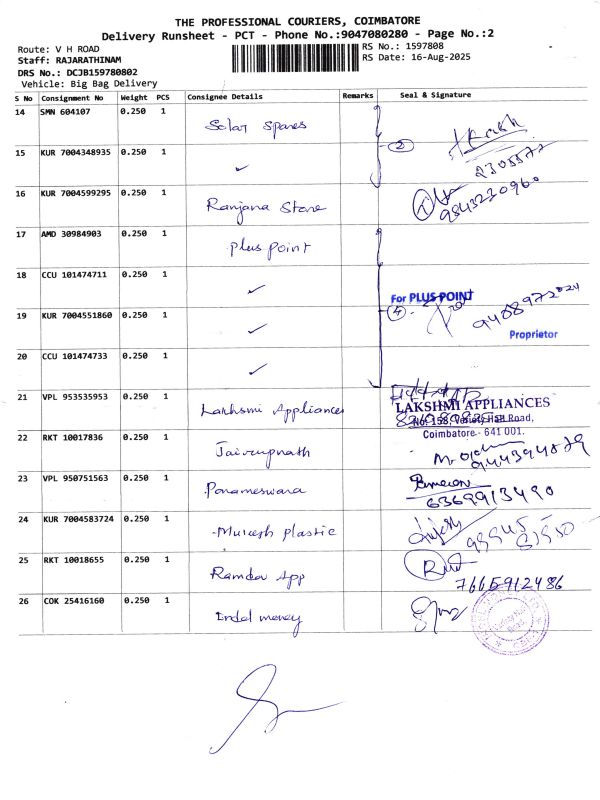 THE PROFESSIONAL COURIERS, COIMBATORE
Delivery Runsheet - PCT - Phone No.:9047080280 - Page No.:2
Route: V H ROAD
RS No.: 1597808
Staff: RAJARATHINAM
RS Date: 16-Aug-2025
DRS No.: DCJB159780802
Vehicle: Big Bag Delivery
S No Consignment No Weight PCS Consignee Details Remarks Seal & Signature
14 SMN 604107 0.250 1 Solar Spares
15 KUR 7004348935 0.250 1 ✓ 2
2305577
16 KUR 7004599295 0.250 1 Ranjana Store 9843230960
17 AMD 30984903 0.250 1 plus point
18 CCU 101474711 0.250 1 ✓
For PLUS POINT
19 KUR 7004551860 0.250 1 ✓ 4
Proprietor
20 CCU 101474733 0.250 1 ✓
21 VPL 953535953 0.250 1 Lakhsmi Appliances
LAKSHMI APPLIANCES
No: 158, Variety Hall Road,
Coimbatore - 641 001.
22 RKT 10017836 0.250 1
944394879
23 VPL 950751563 0.250 1 Parameswara
6369913490
24 KUR 7004583724 0.250 1 Mukesh plastic
25 RKT 10018655 0.250 1 Ramdev App
7665912486
26 COK 25416160 0.250 1 Indel money